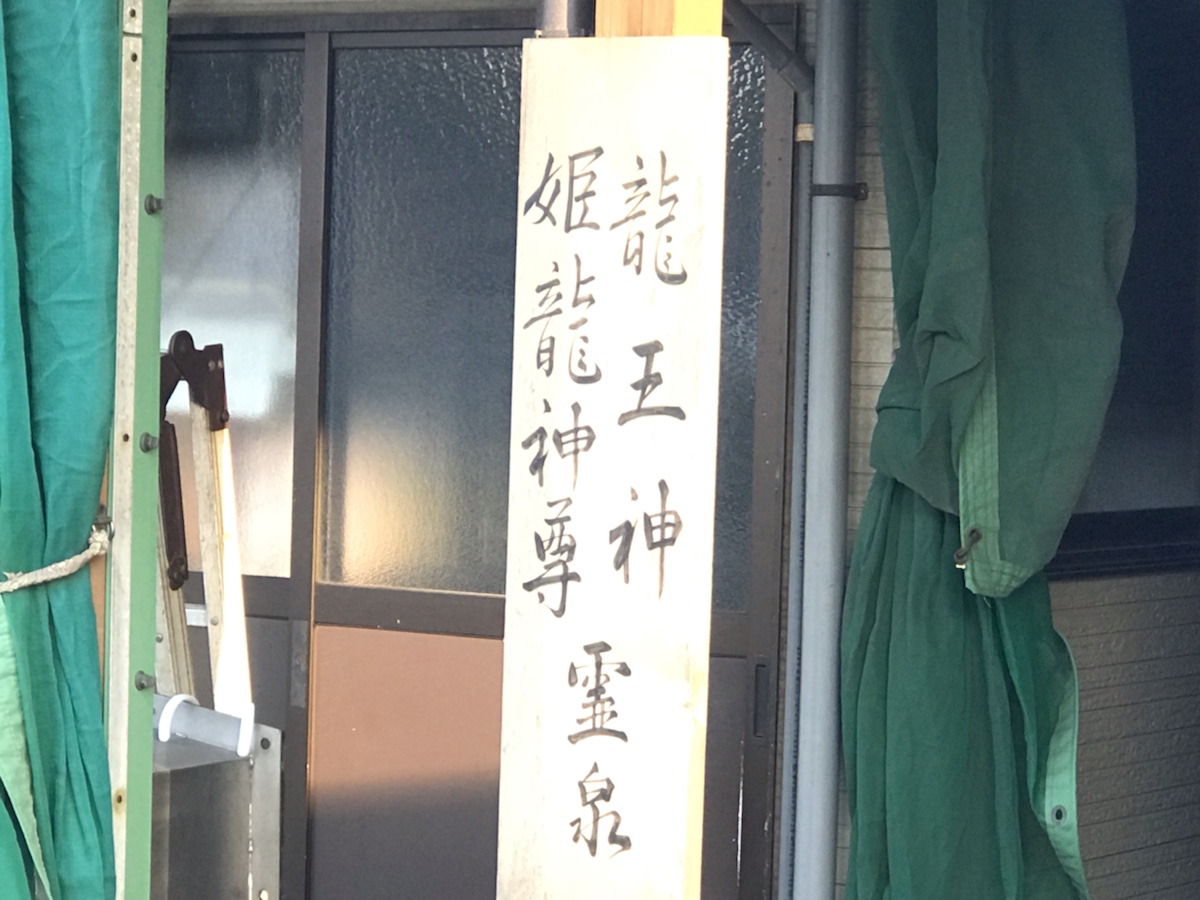 龍王神
姫龍神尊
霊泉